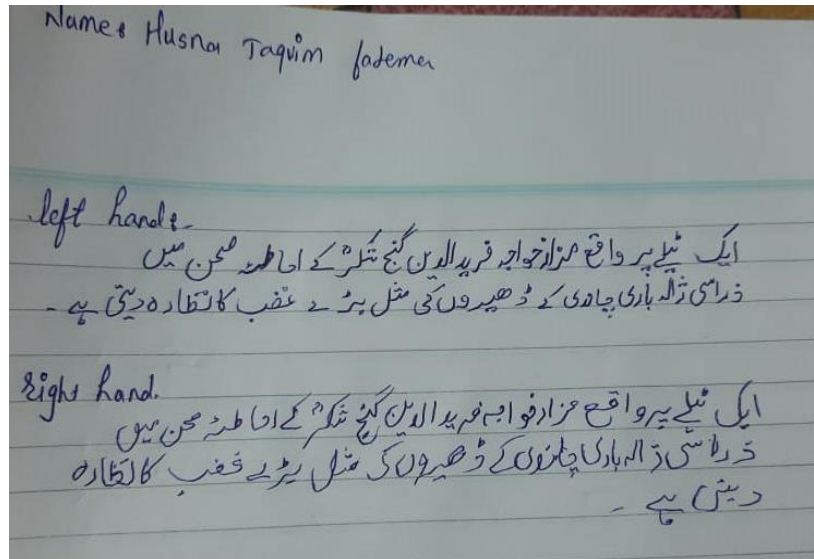 Name: Husna Taqvim fatema
left hand:-
ایک ٹیلے پر واقع مزار خواجہ فرید الدین گنج شکرؒ کے احاطۂ صحن میں
ذرا سی ژالہ باری چاندی کے ڈھیروں کی مثل بڑے غضب کا نظارہ دیتی ہے ۔
right hand.
ایک ٹیلے پر واقع مزار خواجہ فرید الدین گنج شکرؒ کے احاطۂ صحن میں
ذرا سی ژالہ باری چاندی کے ڈھیروں کی مثل بڑے غضب کا نظارہ
دیتی ہے ۔